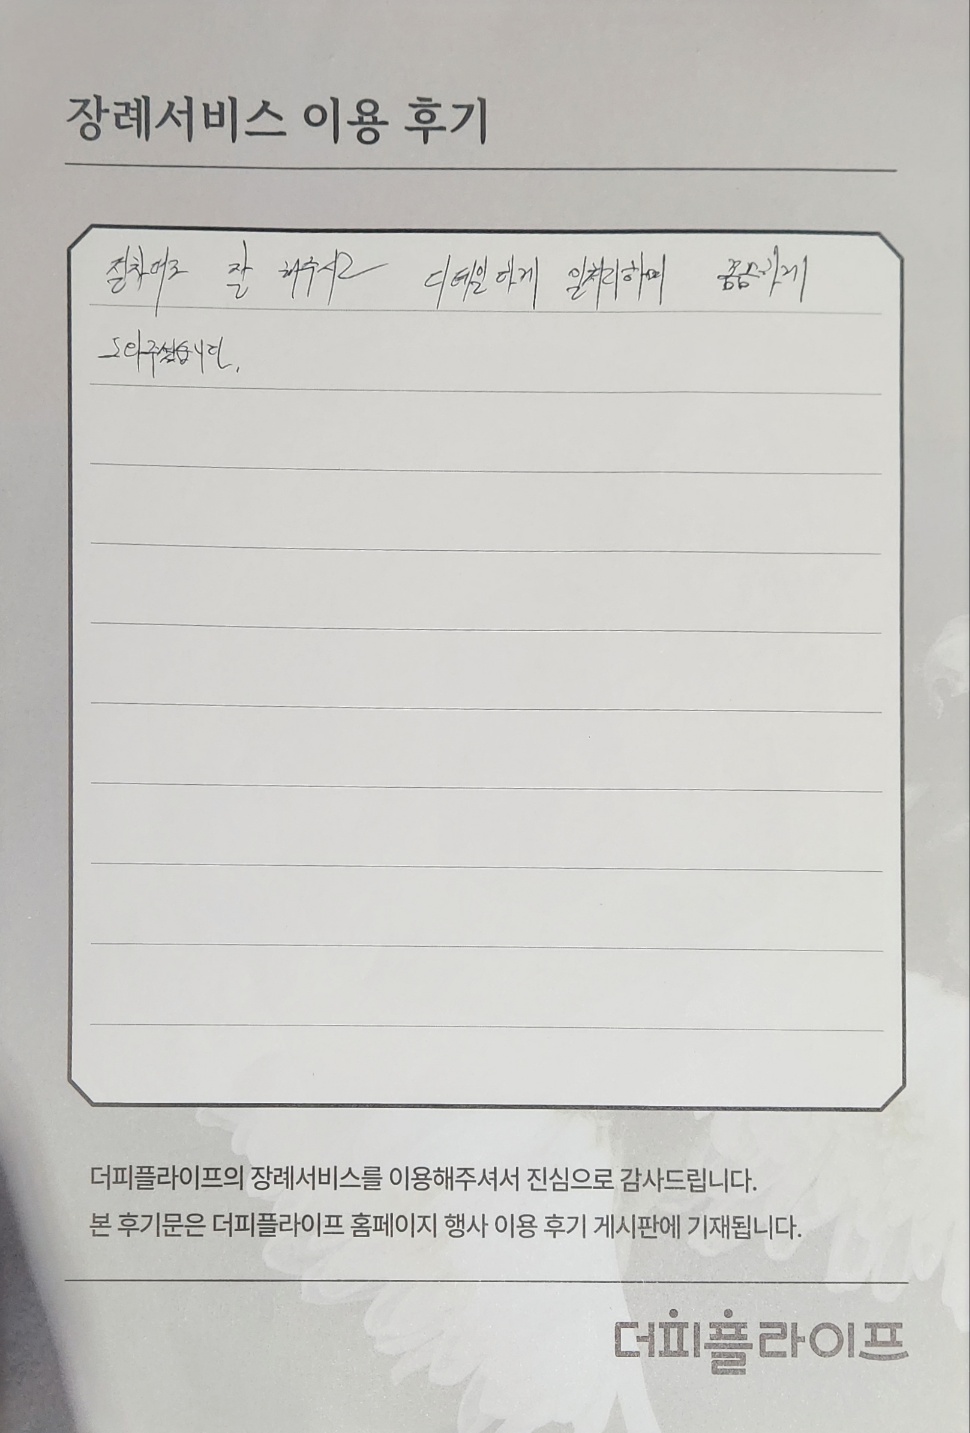 장례서비스 이용 후기
절차대로 잘 해주시고 디테일하게 일처리하며 꼼꼼하게
도와주셨습니다.
더피플라이프의 장례서비스를 이용해주셔서 진심으로 감사드립니다.
본 후기문은 더피플라이프 홈페이지 행사 이용 후기 게시판에 기재됩니다.
더피플라이프